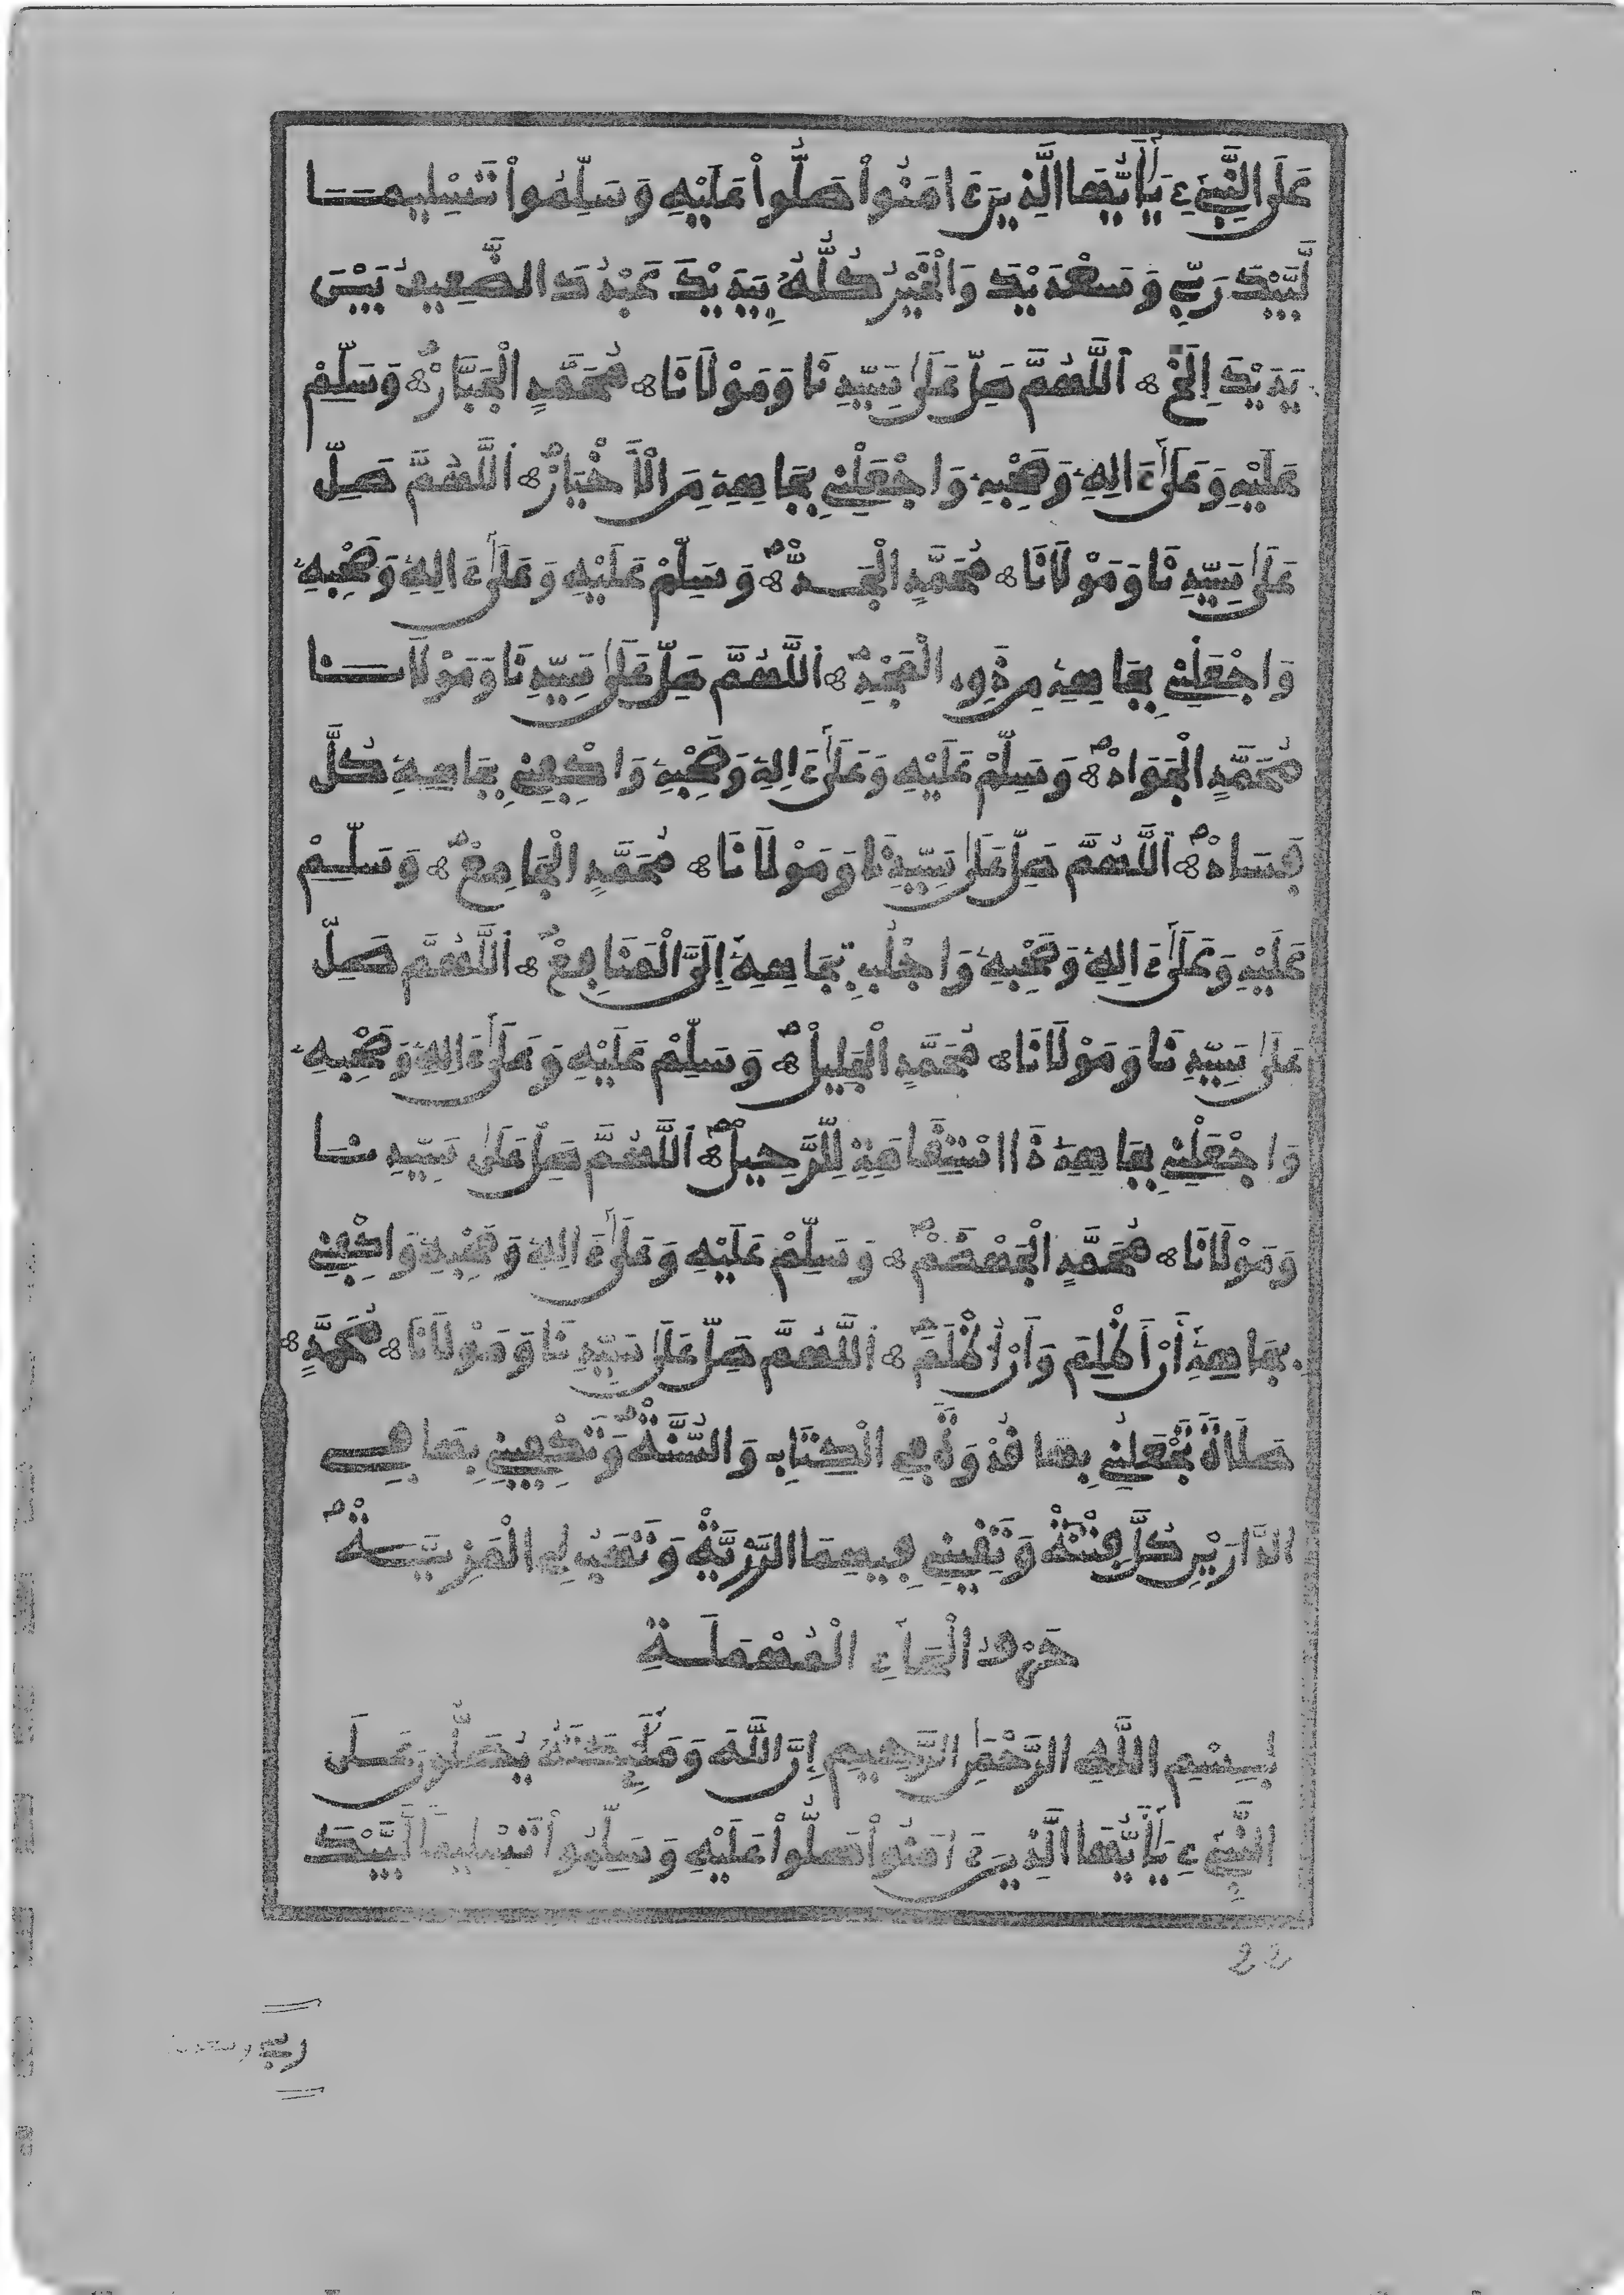 عَلَى النَّبِيِٕ يَٰأَيُّهَا الَّذِينَ ءَامَنُواْ صَلُّواْ عَلَيْهِ وَسَلِّمُواْ تَسْلِيمَا
لَبَّيْكَ رَبِّي وَسَعْدَيْكَ وَالْخَيْرُ كُلُّهُ بِيَدَيْكَ عَبْدُكَ الضَّعِيفُ بَيْنَ
يَدَيْكَ إِلَخْ ۞ اَللَّهُمَّ صَلِّ عَلَىٰ سَيِّدِنَا وَمَوْلَانَا ۞ مُحَمَّدٍ الْجَبَّارْ ۞ وَسَلِّمْ
عَلَيْهِ وَعَلَىٰ ءَالِهِ وَصَحْبِهِ وَاجْعَلْنِي بِجَاهِهِ مِنَ الْأَخْيَارْ ۞ اَللَّهُمَّ صَلِّ
عَلَىٰ سَيِّدِنَا وَمَوْلَانَا ۞ مُحَمَّدٍ الْجَدّْ ۞ وَسَلِّمْ عَلَيْهِ وَعَلَىٰ ءَالِهِ وَصَحْبِهِ
وَاجْعَلْنِي بِجَاهِهِ مِن ذَوِي الْمَجْدِ ۞ اَللَّهُمَّ صَلِّ عَلَىٰ سَيِّدِنَا وَمَوْلَانَا
مُحَمَّدٍ الْجَوَادْ ۞ وَسَلِّمْ عَلَيْهِ وَعَلَىٰ ءَالِهِ وَصَحْبِهِ وَاكْفِنِي بِجَاهِهِ كُلَّ
فَسَادْ ۞ اَللَّهُمَّ صَلِّ عَلَىٰ سَيِّدِنَا وَمَوْلَانَا ۞ مُحَمَّدٍ الْجَامِعْ ۞ وَسَلِّمْ
عَلَيْهِ وَعَلَىٰ ءَالِهِ وَصَحْبِهِ وَاجْلُبْ بِجَاهِهِ إِلَيَّ الْمَنَافِعْ ۞ اَللَّهُمَّ صَلِّ
عَلَىٰ سَيِّدِنَا وَمَوْلَانَا ۞ مُحَمَّدٍ الْجَلِيلْ ۞ وَسَلِّمْ عَلَيْهِ وَعَلَىٰ ءَالِهِ وَصَحْبِهِ
وَاجْعَلْنِي بِجَاهِهِ ذَا اسْتِقَامَةٍ لِلرَّحِيلْ ۞ اَللَّهُمَّ صَلِّ عَلَىٰ سَيِّدِنَا
وَمَوْلَانَا ۞ مُحَمَّدٍ الْجَهْضَمْ ۞ وَسَلِّمْ عَلَيْهِ وَعَلَىٰ ءَالِهِ وَصَحْبِهِ وَاكْفِنِي
بِجَاهِهِ أَنْ أَظْلِمَ وَأَنْ أُظْلَمَ ۞ اَللَّهُمَّ صَلِّ عَلَىٰ سَيِّدِنَا وَمَوْلَانَا ۞ مُحَمَّدٍ ۞
صَلَاةً تَجْعَلُنِي بِهَا قُدْوَةً فِي الْكِتَابِ وَالسُّنَّةْ وَتَكْفِينِي بِهَا فِي
الدَّارَيْنِ كُلَّ فِتْنَةْ وَتَقِينِي فِيهِمَا الرَّزِيَّةْ وَتَهَبُ لِي الْمَزِيَّةْ
حَرْفُ الْحَاءِ الْمُهْمَلَةِ
بِسْمِ اللَّهِ الرَّحْمَٰنِ الرَّحِيمِ إِنَّ اللَّهَ وَمَلَٰئِكَتَهُ يُصَلُّونَ عَلَى
النَّبِيِٕ يَٰأَيُّهَا الَّذِينَ ءَامَنُواْ صَلُّواْ عَلَيْهِ وَسَلِّمُواْ تَسْلِيمًا لَبَّيْكَ
رَبِّي وسعديك